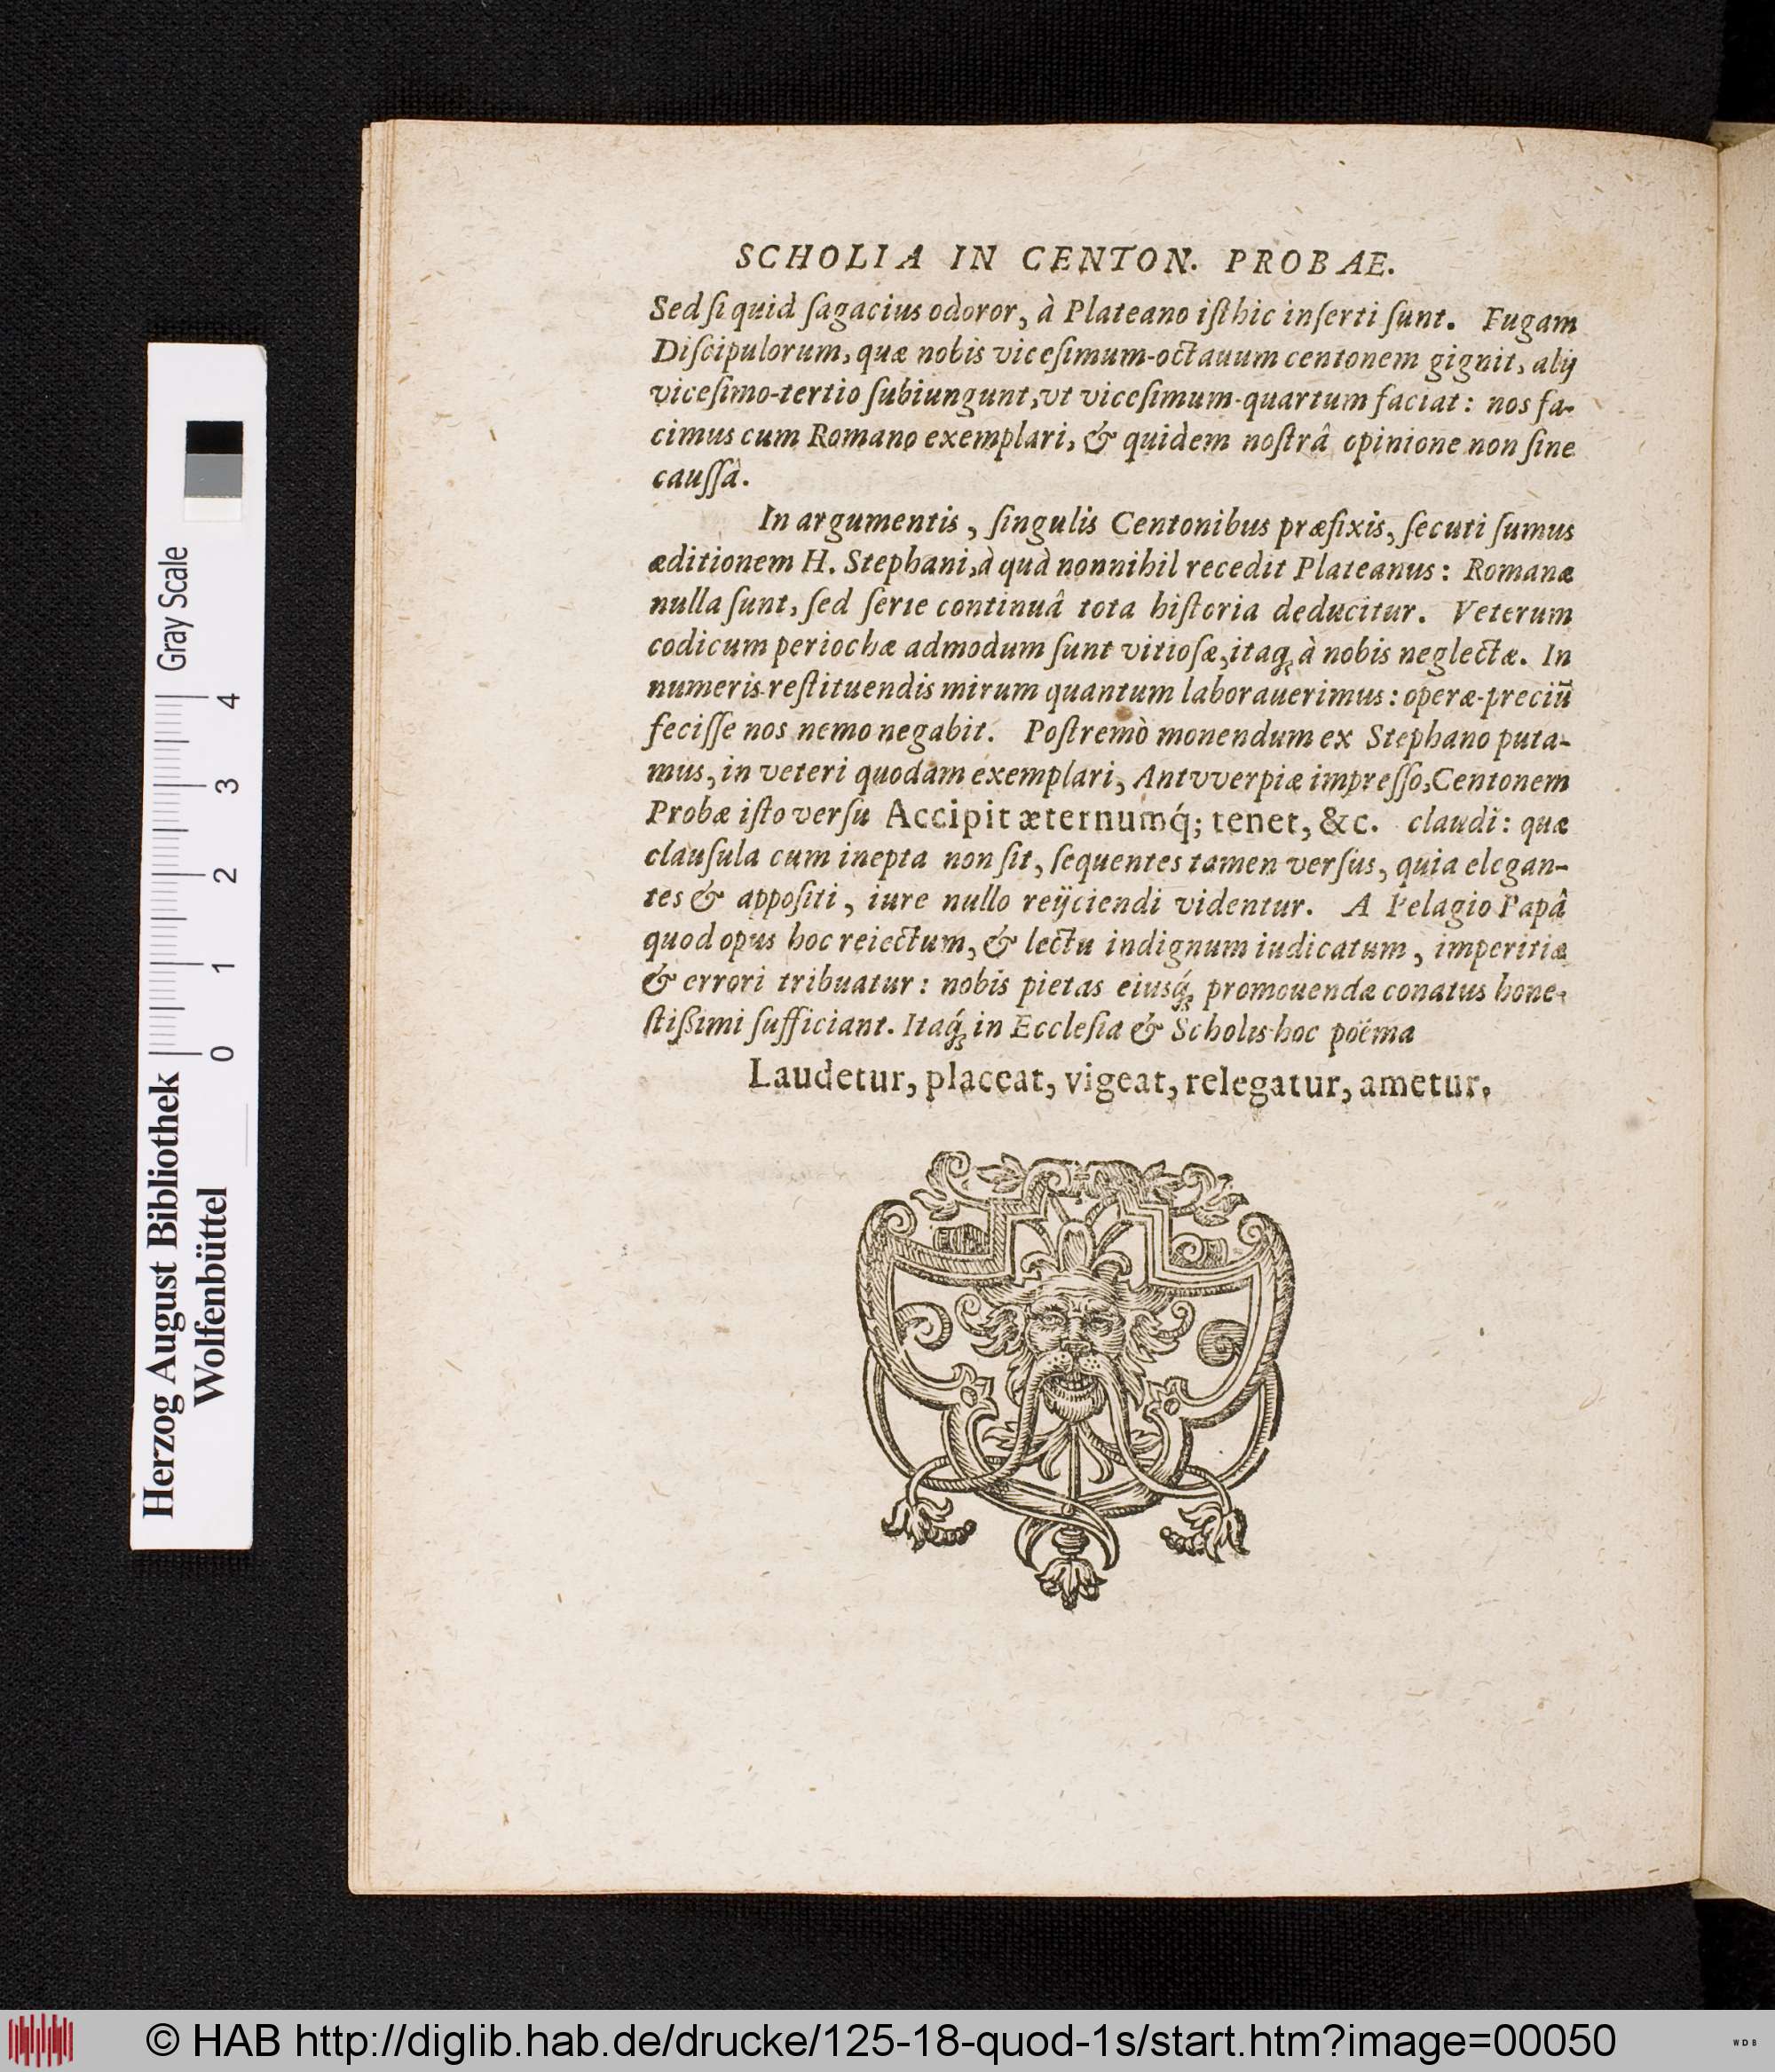 SCHOLIA IN CENTON. PROBAE.
Sed ſi quid ſagacius odoror, à Plateano iſthic inſerti ſunt. Fugam
Diſcipulorum, quæ nobis viceſimum-octauum centonem gignit, alij
viceſimo-tertio ſubiungunt, vt viceſimum-quartum faciat: nos fa-
cimus cum Romano exemplari, & quidem noſtrâ opinione non ſine
cauſſa.
In argumentis, ſingulis Centonibus præfixis, ſecuti ſumus
æditionem H. Stephani, à quà nonnihil recedit Plateanus: Romanæ
nulla ſunt, ſed ſerie continuâ tota hiſtoria deducitur. Veterum
codicum periochæ admodum ſunt vitioſæ, itaq; à nobis neglectæ. In
numeris reſtituendis mirum quantum laborauerimus: operæ-preciũ
feciſſe nos nemo negabit. Poſtremò monendum ex Stephano puta-
mus, in veteri quodam exemplari, Antvverpiæ impreſſo, Centonem
Probæ iſto verſu Accipit æternumq́; tenet, &c. claudi: quæ
clauſula cum inepta non ſit, ſequentes tamen verſus, quia elegan-
tes & appoſiti, iure nullo reijciendi videntur. A Pelagio Papâ
quod opus hoc reiectum, & lectu indignum iudicatum, imperitiæ
& errori tribuatur: nobis pietas eiusq́; promouendæ conatus hone-
ſtißimi ſufficiant. Itaq́; in Eccleſia & Scholis hoc poëma
Laudetur, placeat, vigeat, relegatur, ametur.
Gray Scale
4
3
2
1
0
Herzog August Bibliothek
Wolfenbüttel
© HAB http://diglib.hab.de/drucke/125-18-quod-1s/start.htm?image=00050
WDB